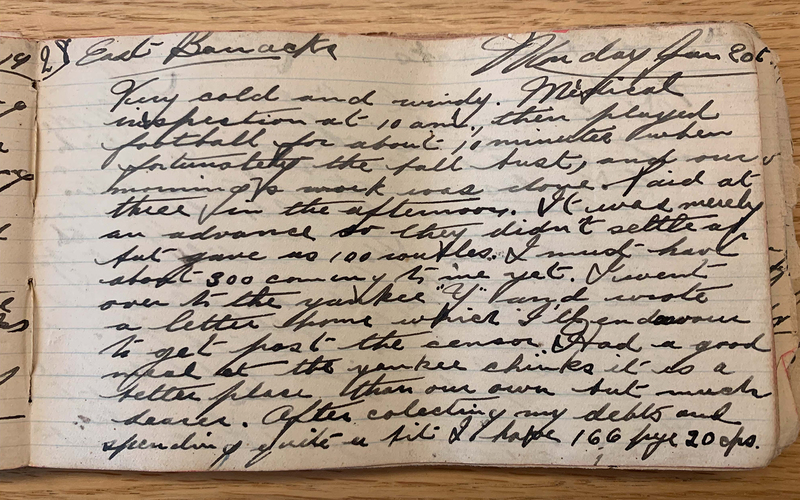 28 East Barracks Monday Jan 20t.
Very cold and windy. Medical
inspection at 10 am., then played
football for about 10 minutes when
fortunately the ball bust, and our
morning's work was done. Paid at
three in the afternoon. It was merely
an advance so they didn't settle up
but gave us 100 roubles. I must have
about 300 coming to me yet. I went
over to the yankee "Y" and wrote
a letter home which I'll endeavour
to get past the censor. Had a good
meal at the yankee chinks it is a
better place than our own but much
dearer. After colecting my debts and
spending quite a bit I have 166 rye 20 cps.